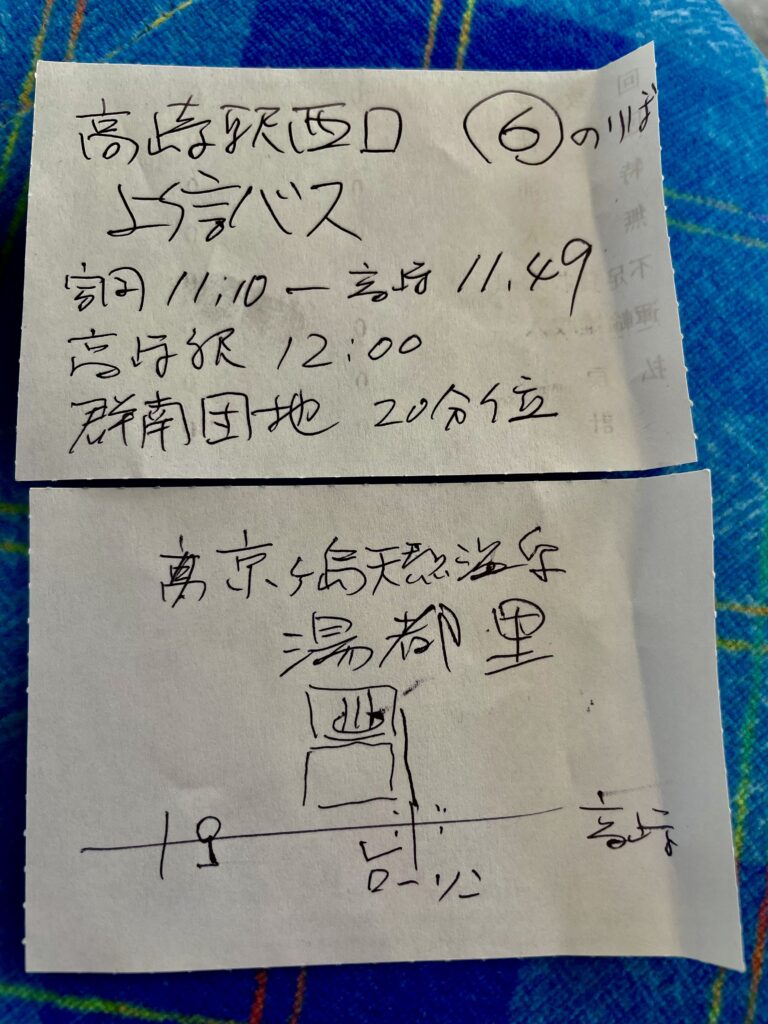 高崎駅西口 ⑥のりば
上信バス
富岡 11:10 ー 高崎 11.49
高崎駅 12:00
群南団地 20分位
京ヶ島天然温泉
湯都里
高崎
ローソン